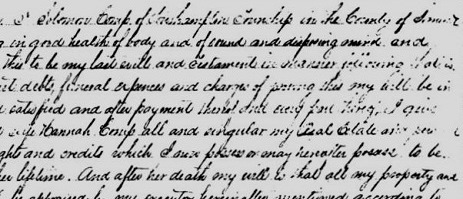 I Solomon Croup of Southampton Township in the County of Somer
in good health of body and of sound and disposing mind and
this to be my last will and Testament in manner following that is
debts, funeral expences and charge of proving this my will be in
satisfied and after payment thereof and every
wife Hannah Croup all and singular my Real Estate and
and credits which I now possess or may hereafter possess to be
her lifetime. And after her death my will is that all my property and
be appraised by my executor hereinafter mentioned according to